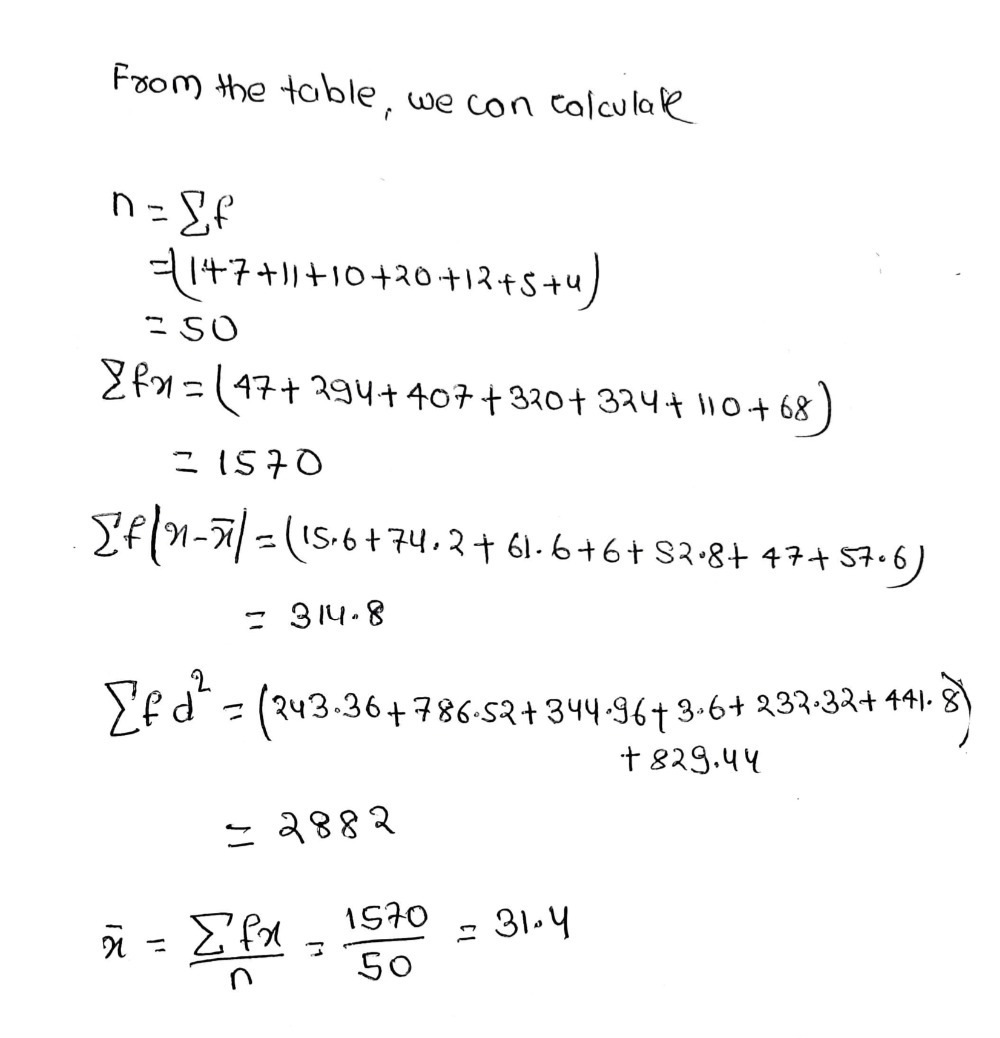 From the table, we can calculate
n = Σf
= (1+7+11+10+20+12+5+4)
= 50
Σfx = (47+294+407+320+324+110+68)
= 1570
Σf|x-x̄| = (15.6+74.2+61.6+6+52.8+47+57.6)
= 314.8
Σfd² = (243.36+786.52+344.96+3.6+232.32+441.8)
+829.44
= 2882
x̄ = Σfx/n = 1570/50 = 31.4